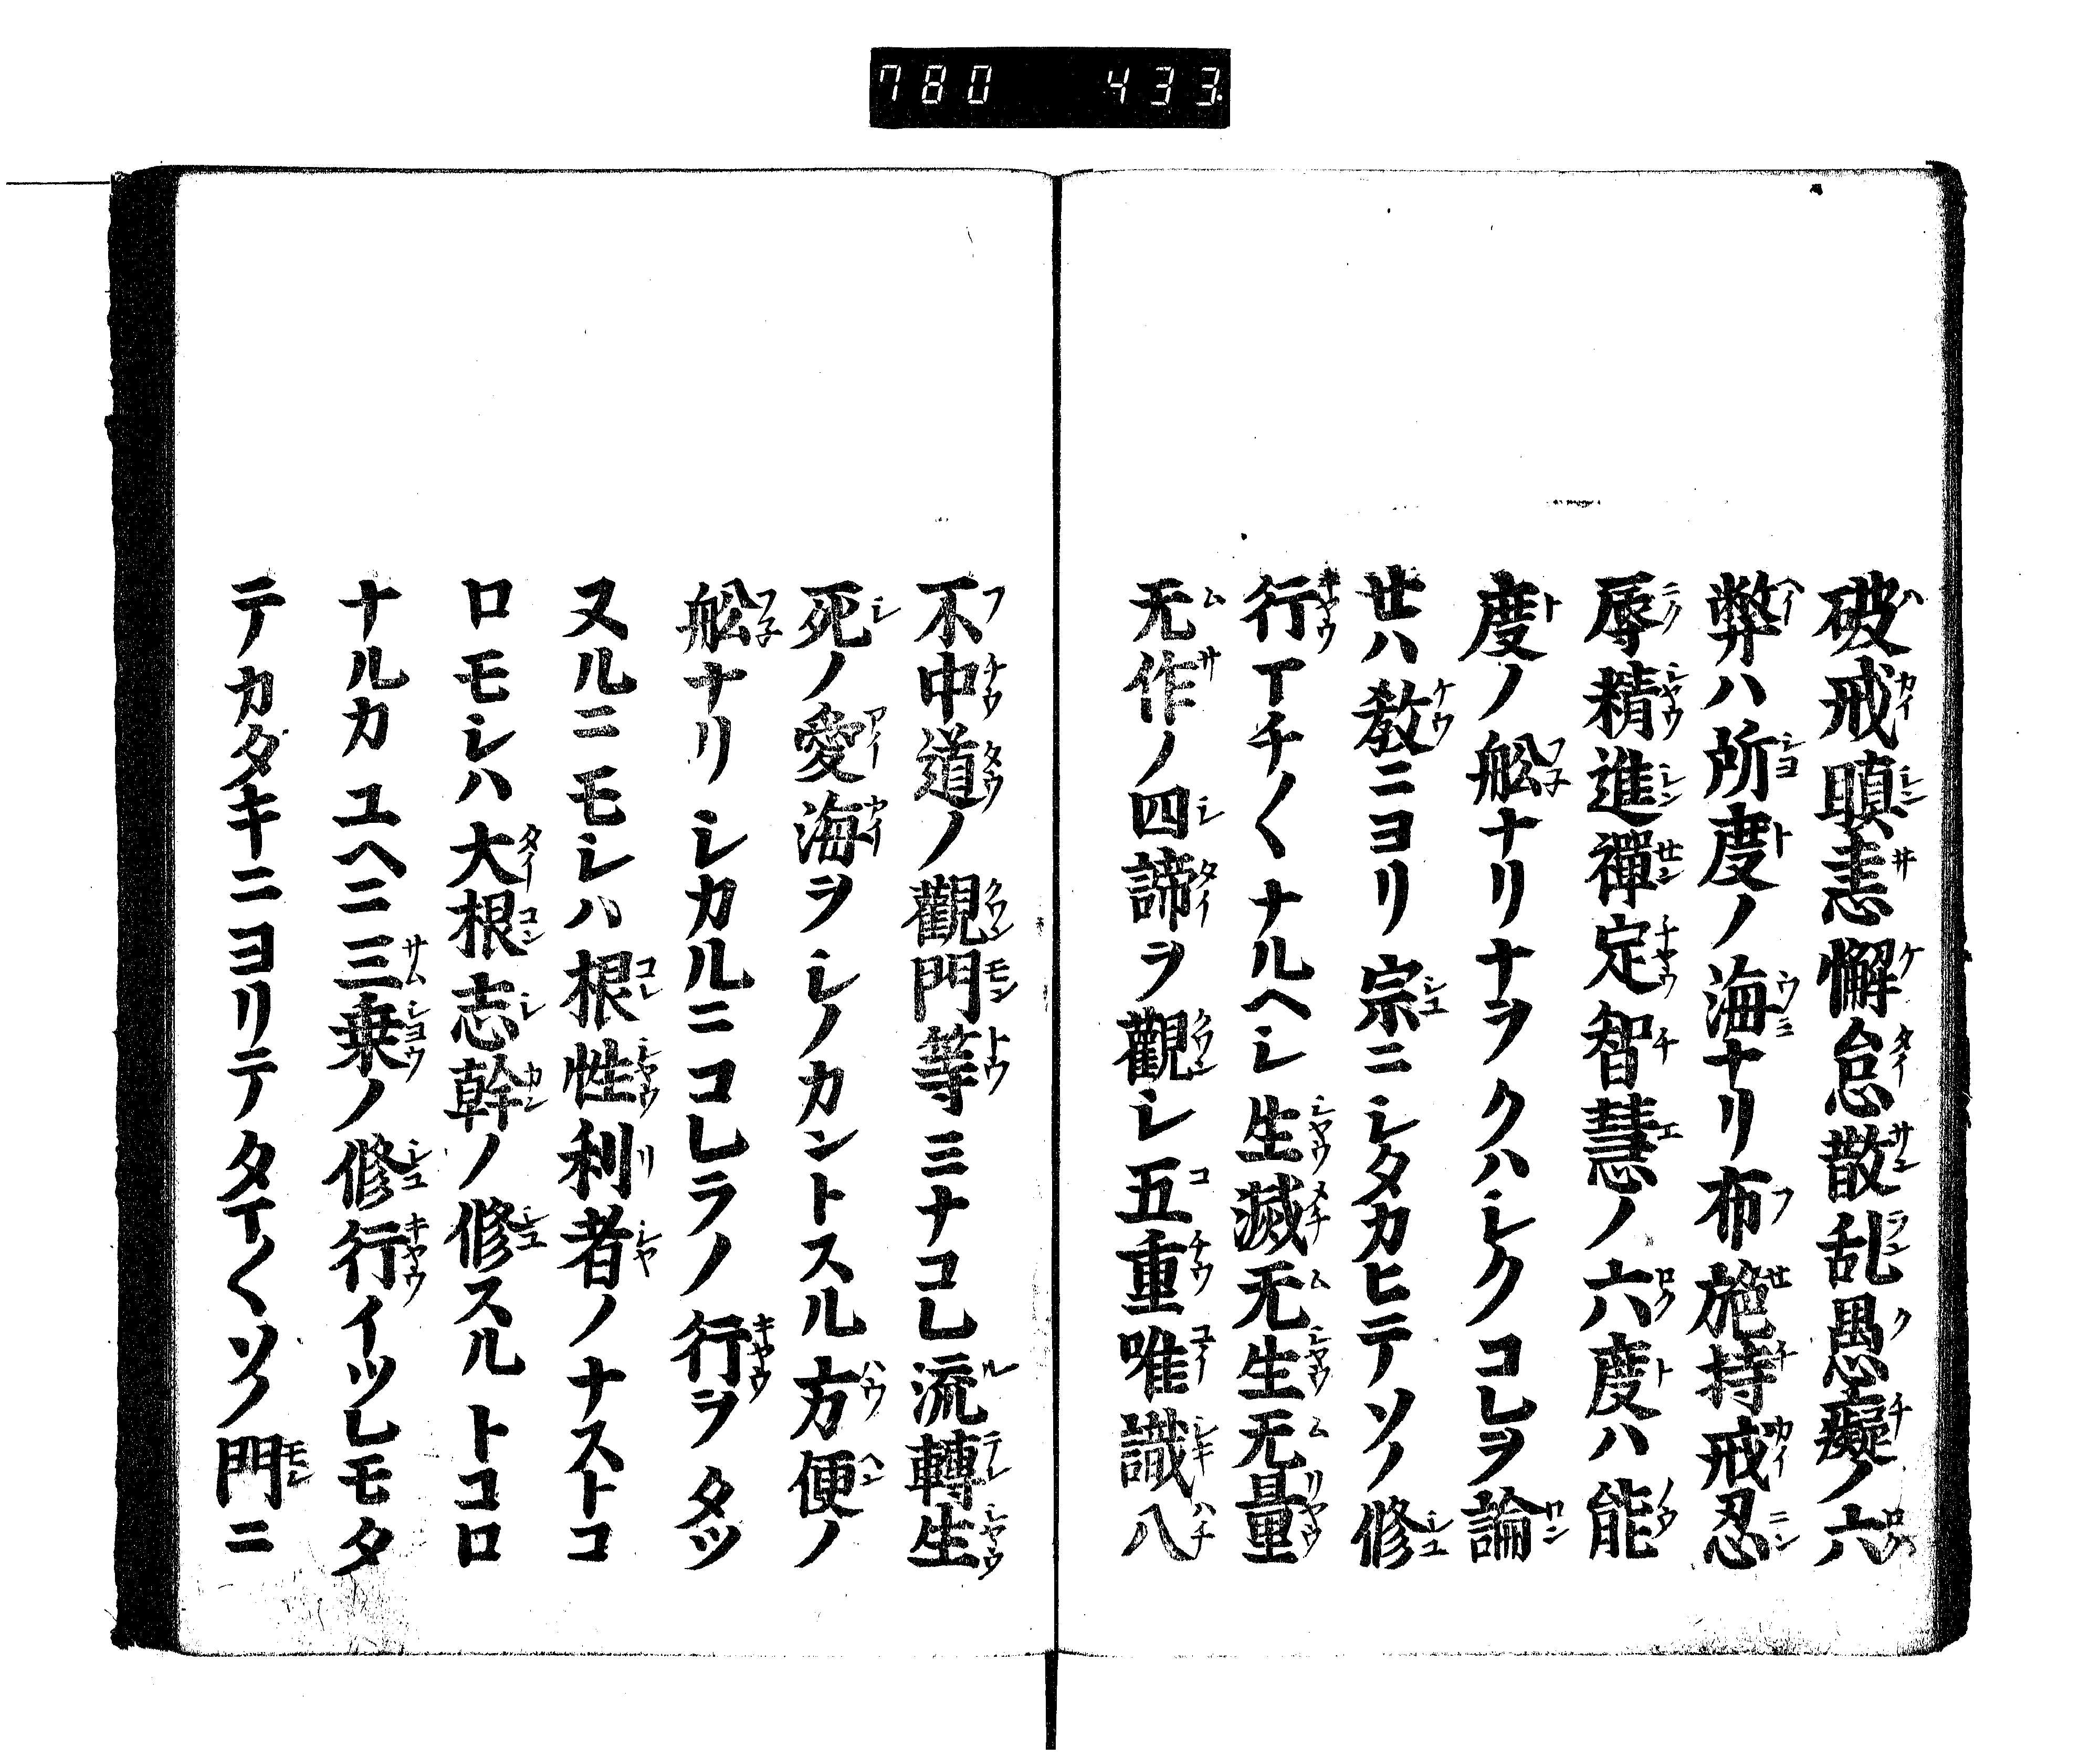 780 433
破戒瞋恚懈怠散乱愚癡ノ六
弊ハ所度ノ海ナリ布施持戒忍
辱精進禪定智慧ノ六度ハ能
度ノ舩ナリナヲクハシクコレヲ論
せハ教ニヨリ宗ニシタカヒテソノ修
行マチ〱ナルヘシ生滅无生无量
无作ノ四諦ヲ觀シ五重唯識八
不中道ノ觀門等ミナコレ流轉生
死ノ愛海ヲシノカントスル方便ノ
舩ナリシカルニコレラノ行ヲタツ
ヌルニモシハ根性利者ノナストコ
ロモシハ大根志幹ノ修スルトコロ
ナルカユヘニ三乗ノ修行イツレモタ
テカダキニヨリテタマ〱ソノ門ニ